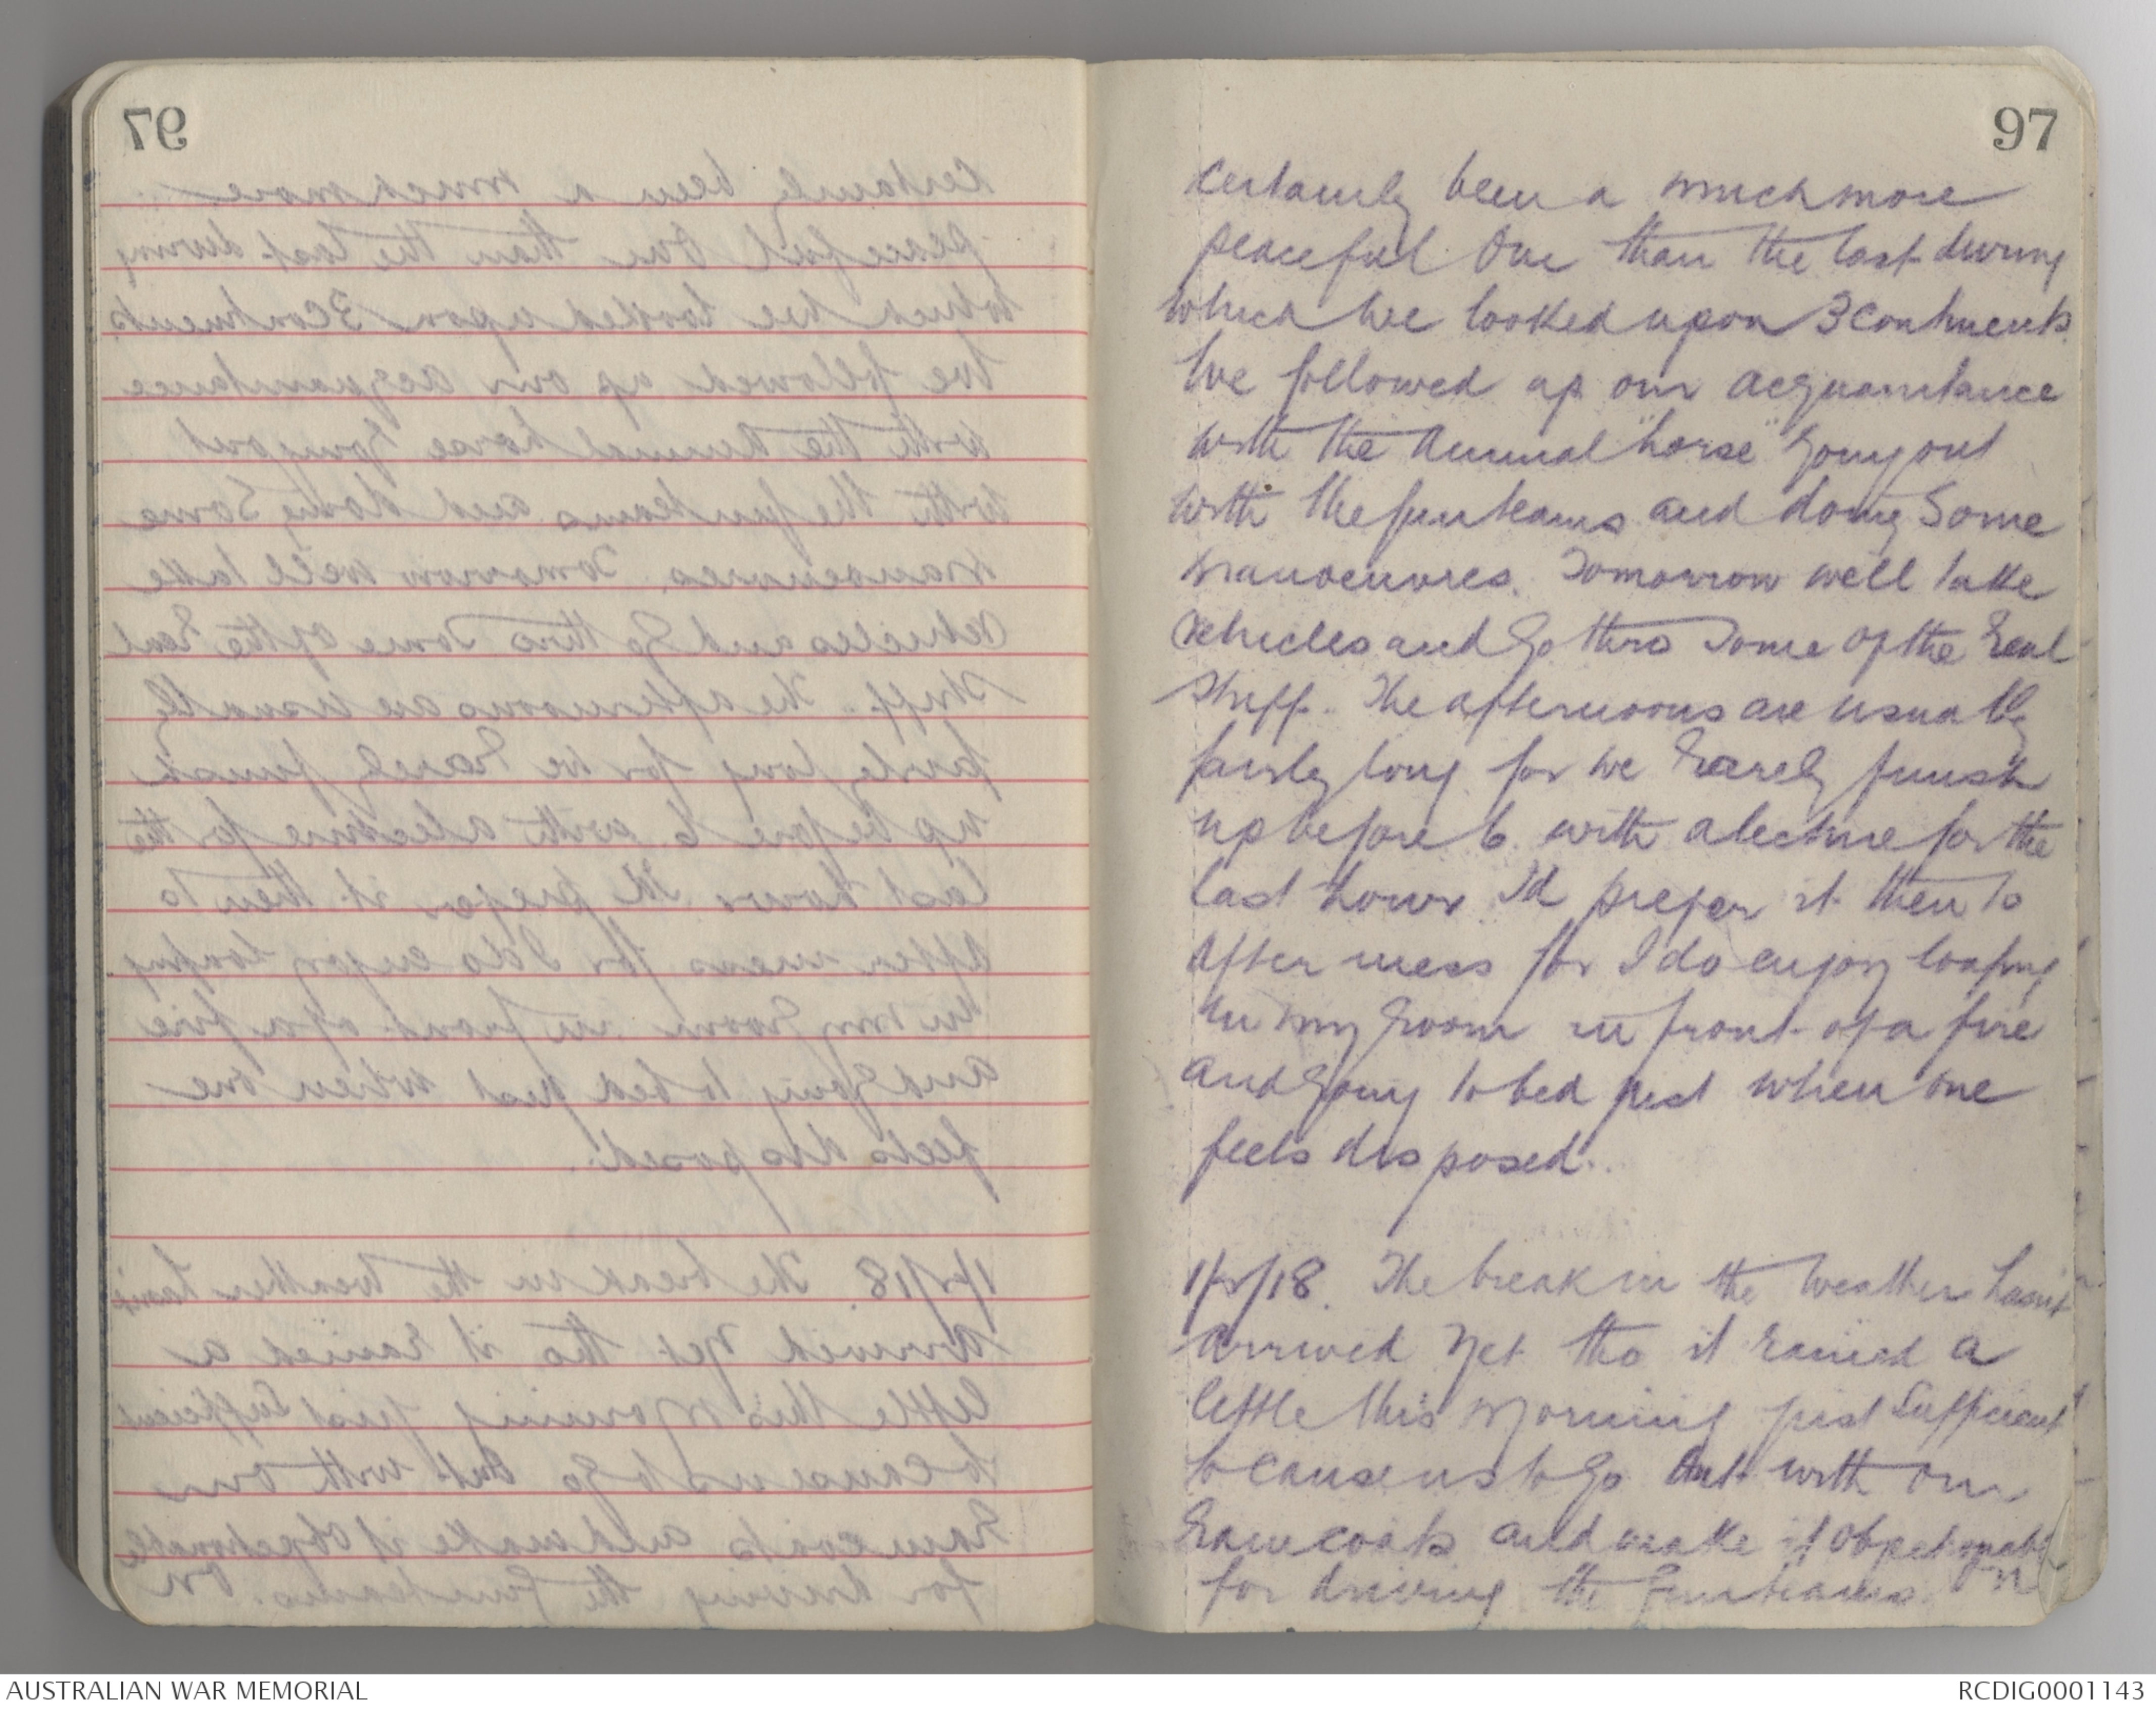 97
certainly been a much more
peaceful One than the last during
which we looked upon 3 Continents.
We followed up our acquaintance
with the Annual "horse" going out
with the gun teams and doing Some
manoeuvres. Tomorrow we'll take
vehicles and Go thro Some of the Real
Stuff. The afternoons are usually
fairly long for we Rarely finish
up before 6. with a lecture for the
last hour I'd prefer it then to
After mess for I do enjoy loafing
in my Room in front of a fire
And Going to bed just when one
feels disposed.
1/2/18. The break in the Weather hasn't
Arrived Yet tho it Rained a
little this Morning just Sufficient
to cause us to Go Out with our
Raincoats and make it Objectionable
for driving the Gun teams. On
97
AUSTRALIAN WAR MEMORIAL
RCDIG0001143